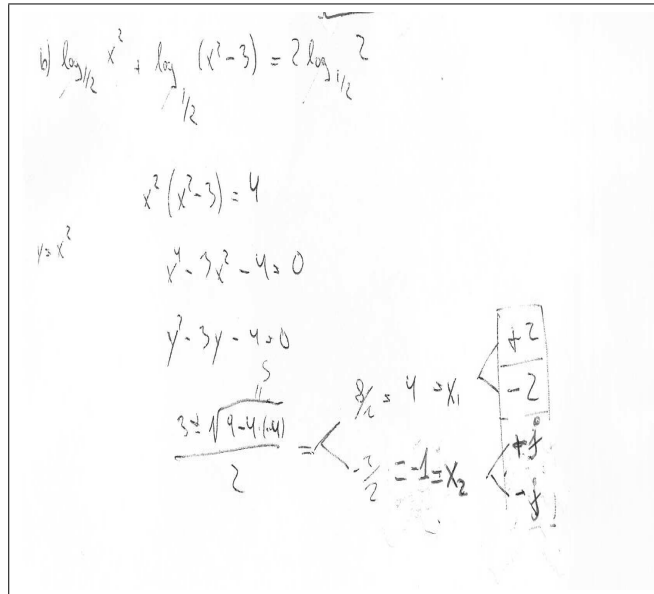 b) log_{1/2} x² + log_{1/2} (x²-3) = 2 log_{1/2} 2
x²(x²-3) = 4
y = x²
x⁴ - 3x² - 4 = 0
y² - 3y - 4 = 0
5
"
(3 ± √(9-4·(-4)))/2 =
8/2 = 4 = x₁
+2
-2
-2/2 = -1 = x₂
+j
-j